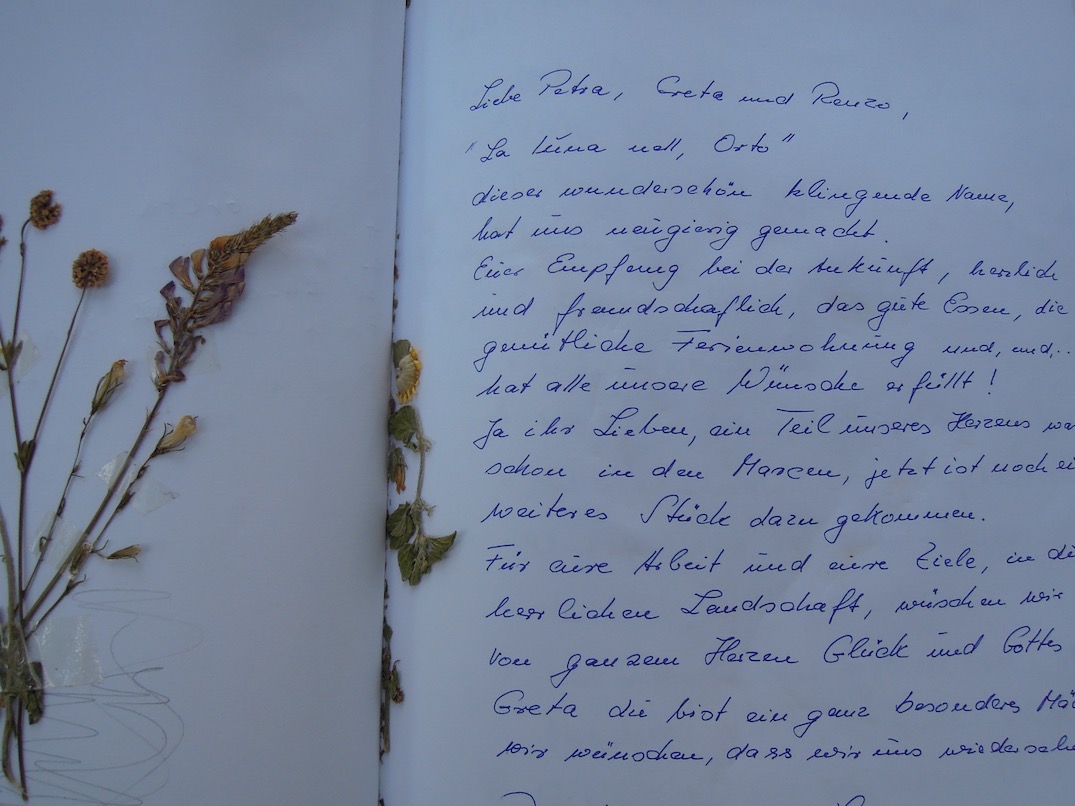 Liebe Petra, Greta und Renzo,
"La Luna nell, Orto"
dieser wunderschön klingende Name,
hat uns neugierig gemacht.
Euer Empfang bei der Ankunft, herzlich
und freundschaflich, das gute Essen, die
gemütliche Ferienwohnung und, und,..
hat alle unsere Wünsche erfüllt!
Ja ihr Lieben, ein Teil unseres Herzens
schon in den Marcen, jetzt ist noch
weiteres Stück dazu gekommen.
Für eure Arbeit und eure Ziele, in
herrlichen Landschaft, wüschen wir
von ganzem Herzen Glück und Gottes
Greta du bist ein ganz besonderes
wir wünschen, dass wir uns